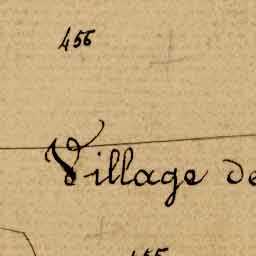 456
Village de
455